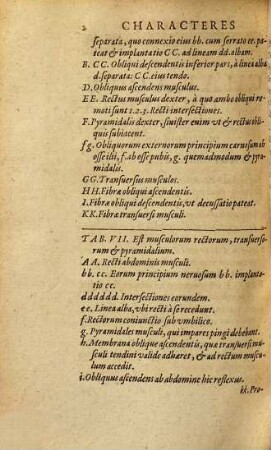 2 CHARACTERES
separata, quo connexio eius bb. cum serrato ee. pa-
teat & implantatio CC. ad lineam dd. albam.
B. CC. Obliqui descendentis inferior pars, à linea alba
d. separata: CC. eius tendo.
D. Obliquus ascendens musculus.
EE. Rectus musculus dexter, à quo ambo obliqui re-
moti sunt 1.2.3. Recti intersectiones.
F. Pyramidalis dexter, sinister enim vt & rectus obli-
quis subiacent.
fg. Obliquorum externorum principium carnosum ab
osse ilii, f. ab osse pubis, g. quemadmodum & py-
ramidalis.
GG. Transuersus musculus.
HH. Fibræ obliqui ascendentis.
I. Fibræ obliqui descendentis, vt decussatio pateat.
KK. Fibræ transuersi musculi.
TAB. VII. Est musculorum rectorum, transuerso-
rum & pyramidalium.
AA. Recti abdominis musculi.
bb. cc. Eorum principium neruosum bb. implanta-
tio cc.
dddddd. Intersectiones eorundem.
ee. Linea alba, vbi recti à se recedunt.
f. Rectorum coniunctio sub vmbilico.
g. Pyramidales musculi, qui impares pingi debebant.
h. Membrana oblique ascendentis, quæ transuersi mu-
sculi tendini valide adhæret, & ad rectum musculum
accedit.
i. Obliquus ascendens ab abdomine hic reflexus.
kk. Pro-